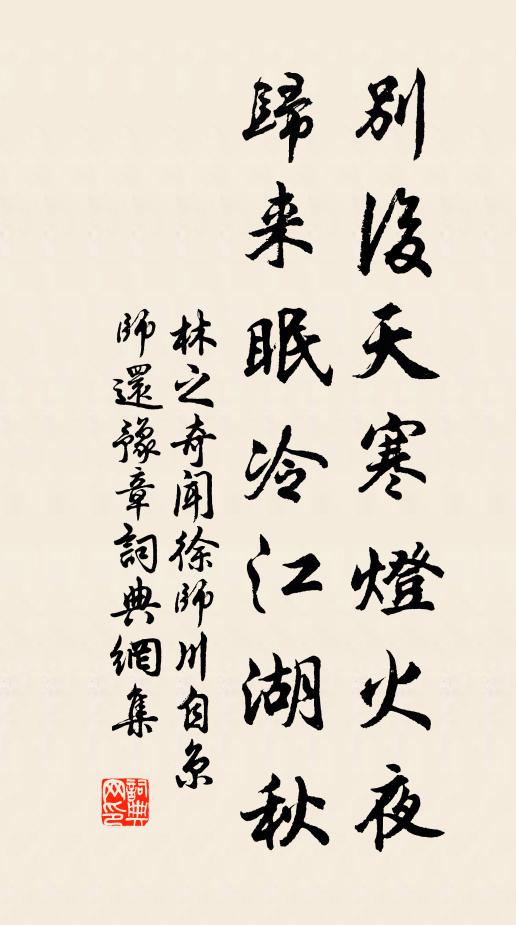 別後天寒燈火夜
歸来眠冷江湖秋
林之奇聞徐師川自京
師還豫章詞典網集
詞典網印